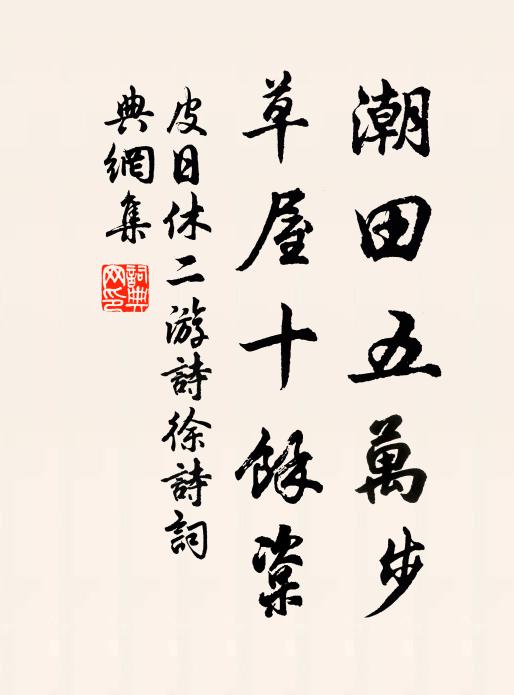 潮田五萬步
草屋十餘粱
皮日休二游詩徐詩詞
典網集
詞典网印